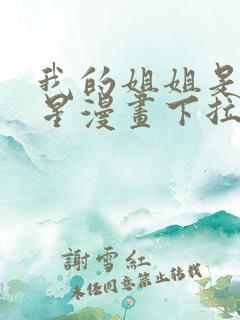 我的姐姐是
星漫畫下拉
謝雪紅
未经同意禁止转载